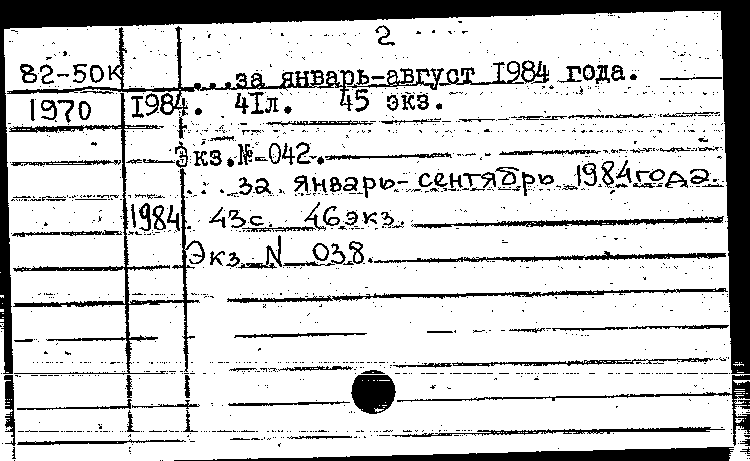 2
82-50к ...за январь-август 1984 года.
1970 1984. 41л. 45 экз.
Экз.№ 042.
... за январь-сентябрь 1984 года.
1984 43с. 46 экз.
Экз N 038.